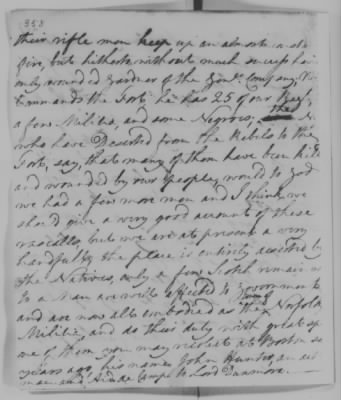 353
their rifle men keep up an almost a
fire, but hitherto without much success ha
only wounded Gardner of the Comp any,
Commands the Fort he has 25 of our Regt,
a few Militia, and some Negroes, the
who have Deserted from the Rebels to the
Fort, say, that many of them have been kill
and wounded by our people, would to god
we had a few more men and I think we
should give a very good account of these
rascalls, but we are at present a very
handfull, the place is entirely deserted by
the Natives, only a few Scotch remain
to a Man are well affected to Governmen t
and are now all embodied as the Norfolk
Militia and do their duty with great
one of them you may recolect at Boston
years ago, his name's John Hunter, an
man and Aid de Camp to Lord Dunmore.